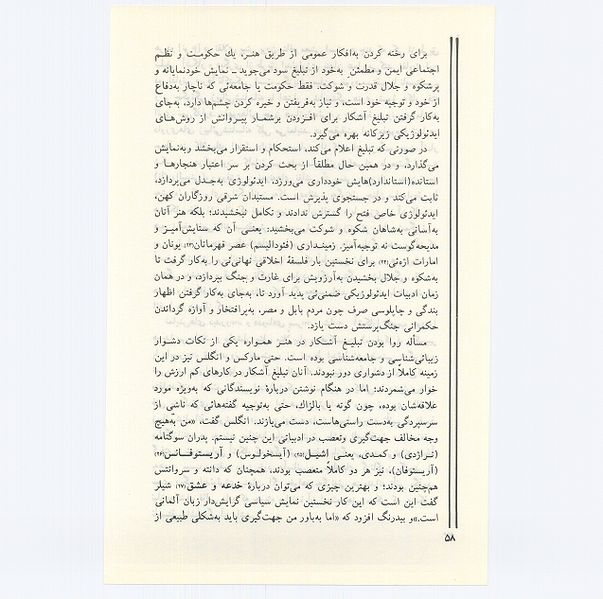 برای رخنه کردن به‌افکار عمومی از طریق هنر، یك حکومت و نظم
اجتماعی ایمن و مطمئن به‌خود از تبلیغ سود می‌جوید ــ نمایش خودنمایانه و
پرشکوه و جلال قدرت و شوکت. فقط حکومت یا جامعه‌ئی که ناچار به‌دفاع
از خود و توجیه خود است، و نیاز به‌فریفتن و خیره کردن چشم‌ها دارد، به‌جای
به‌کار گرفتن تبلیغ آشکار برای افزودن برشمار پیروانش از روش‌های
ایدئولوژیکی زیرکانه بهره می‌گیرد.
در صورتی که تبلیغ اعلام می‌کند، استحکام و استقرار می‌بخشد وبه‌نمایش
می‌گذارد، و در همین حال مطلقاً از بحث کردن بر سر اعتبار هنجارها و
استانده(استاندارد)هایش خودداری می‌ورزد، ایدئولوژی به‌جدل می‌پردازد،
ثابت می‌کند و در جستجوی پذیرش است. مستبدان شرقی روزگاران کهن،
ایدئولوژی خاص فتح را گسترش ندادند و تکامل نبخشیدند؛ بلکه هنر آنان
به‌آسانی به‌شاهان شکوه و شوکت می‌بخشید: یعنی آن که ستایش‌آمیز و
مدیحه‌گوست نه توجیه‌آمیز. زمینداری (فئودالیسم) عصر قهرمانان(۲۳) یونان و
امارات اژه‌ئی(۲۴) برای نخستین بار فلسفهٔ اخلاقی نهانی‌ئی را به‌کار گرفت تا
به‌شکوه و جلال بخشیدن به‌آرزویش برای غارت و جنگ بپردازد، و در همان
زمان ادبیات ایدئولوژیکی ضمنی‌ئی پدید آورد تا، به‌جای به‌کار گرفتن اظهار
بندگی و چاپلوسی صرف چون مردم بابل و مصر، به‌پرافتخار و آوازه گرداندن
حکمرانی جنگ‌پرستش دست یازد.
مسأله روا بودن تبلیغ آشکار در هنر همواره یکی از نکات دشوار
زیبائی‌شناسی و جامعه‌شناسی بوده است. حتی مارکس و انگلس نیز در این
زمینه کاملاً از دشواری دور نبودند. آنان تبلیغ آشکار در کارهای کم ارزش را
خوار می‌شمردند؛ اما در هنگام نوشتن دربارهٔ نویسندگانی که به‌ویژه مورد
علاقه‌شان بوده، چون گوته یا بالزاك، حتی به‌توجیه گفته‌هائی که ناشی از
سرسپردگی به‌دست راستی‌هاست، دست می‌یازند. انگلس گفت، «من به‌هیچ
وجه مخالف جهت‌گیری وتعصب در ادبیاتی این چنین نیستم. پدران سوگنامه
(تراژدی) و کمدی، یعنی اُشیل(۲۵) (آیسخولوس) و آریستوفانس(۲۶)
(آریستوفان)، نیز هر دو کاملاً متعصب بودند، همچنان که دانته و سروانتس
هم‌چنین بودند؛ و بهترین چیزی که می‌توان دربارهٔ خدعه و عشق(۲۷) شیلر
گفت این است که این کار نخستین نمایش سیاسی گرایش‌دار زبان آلمانی
است.»و بیدرنگ افزود که «اما به‌باور من جهت‌گیری باید به‌شکلی طبیعی از
۵۸